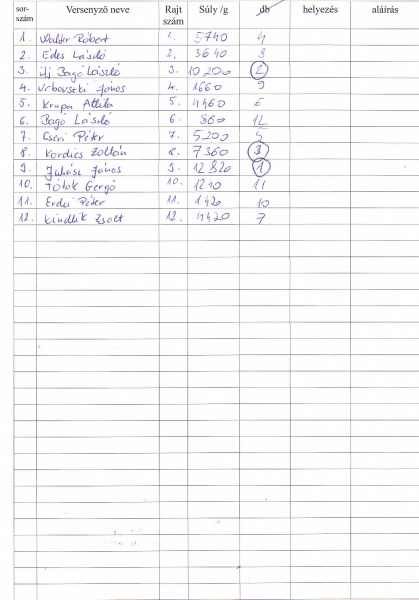 sor-szám Versenyző neve Rajt szám Súly /g db helyezés aláírás
1. Walter Róbert 1. 5740 4
2. Édes László 2. 3640 8
3. Ifj Bagó László 3. 10200 2
4. Urbovseki János 4. 1660 9
5. Krupa Attila 5. 4460 6
6. Bagó László 6. 860 12
7. Cseri Péter 7. 5200 5
8. Kordics Zoltán 8. 7360 3
9. Juhász János 9. 12820 1
10. Tótok Gergő 10. 1240 11
11. Erdei Péter 11. 1420 10
12. Kindlik Zsolt 12. 4420 7